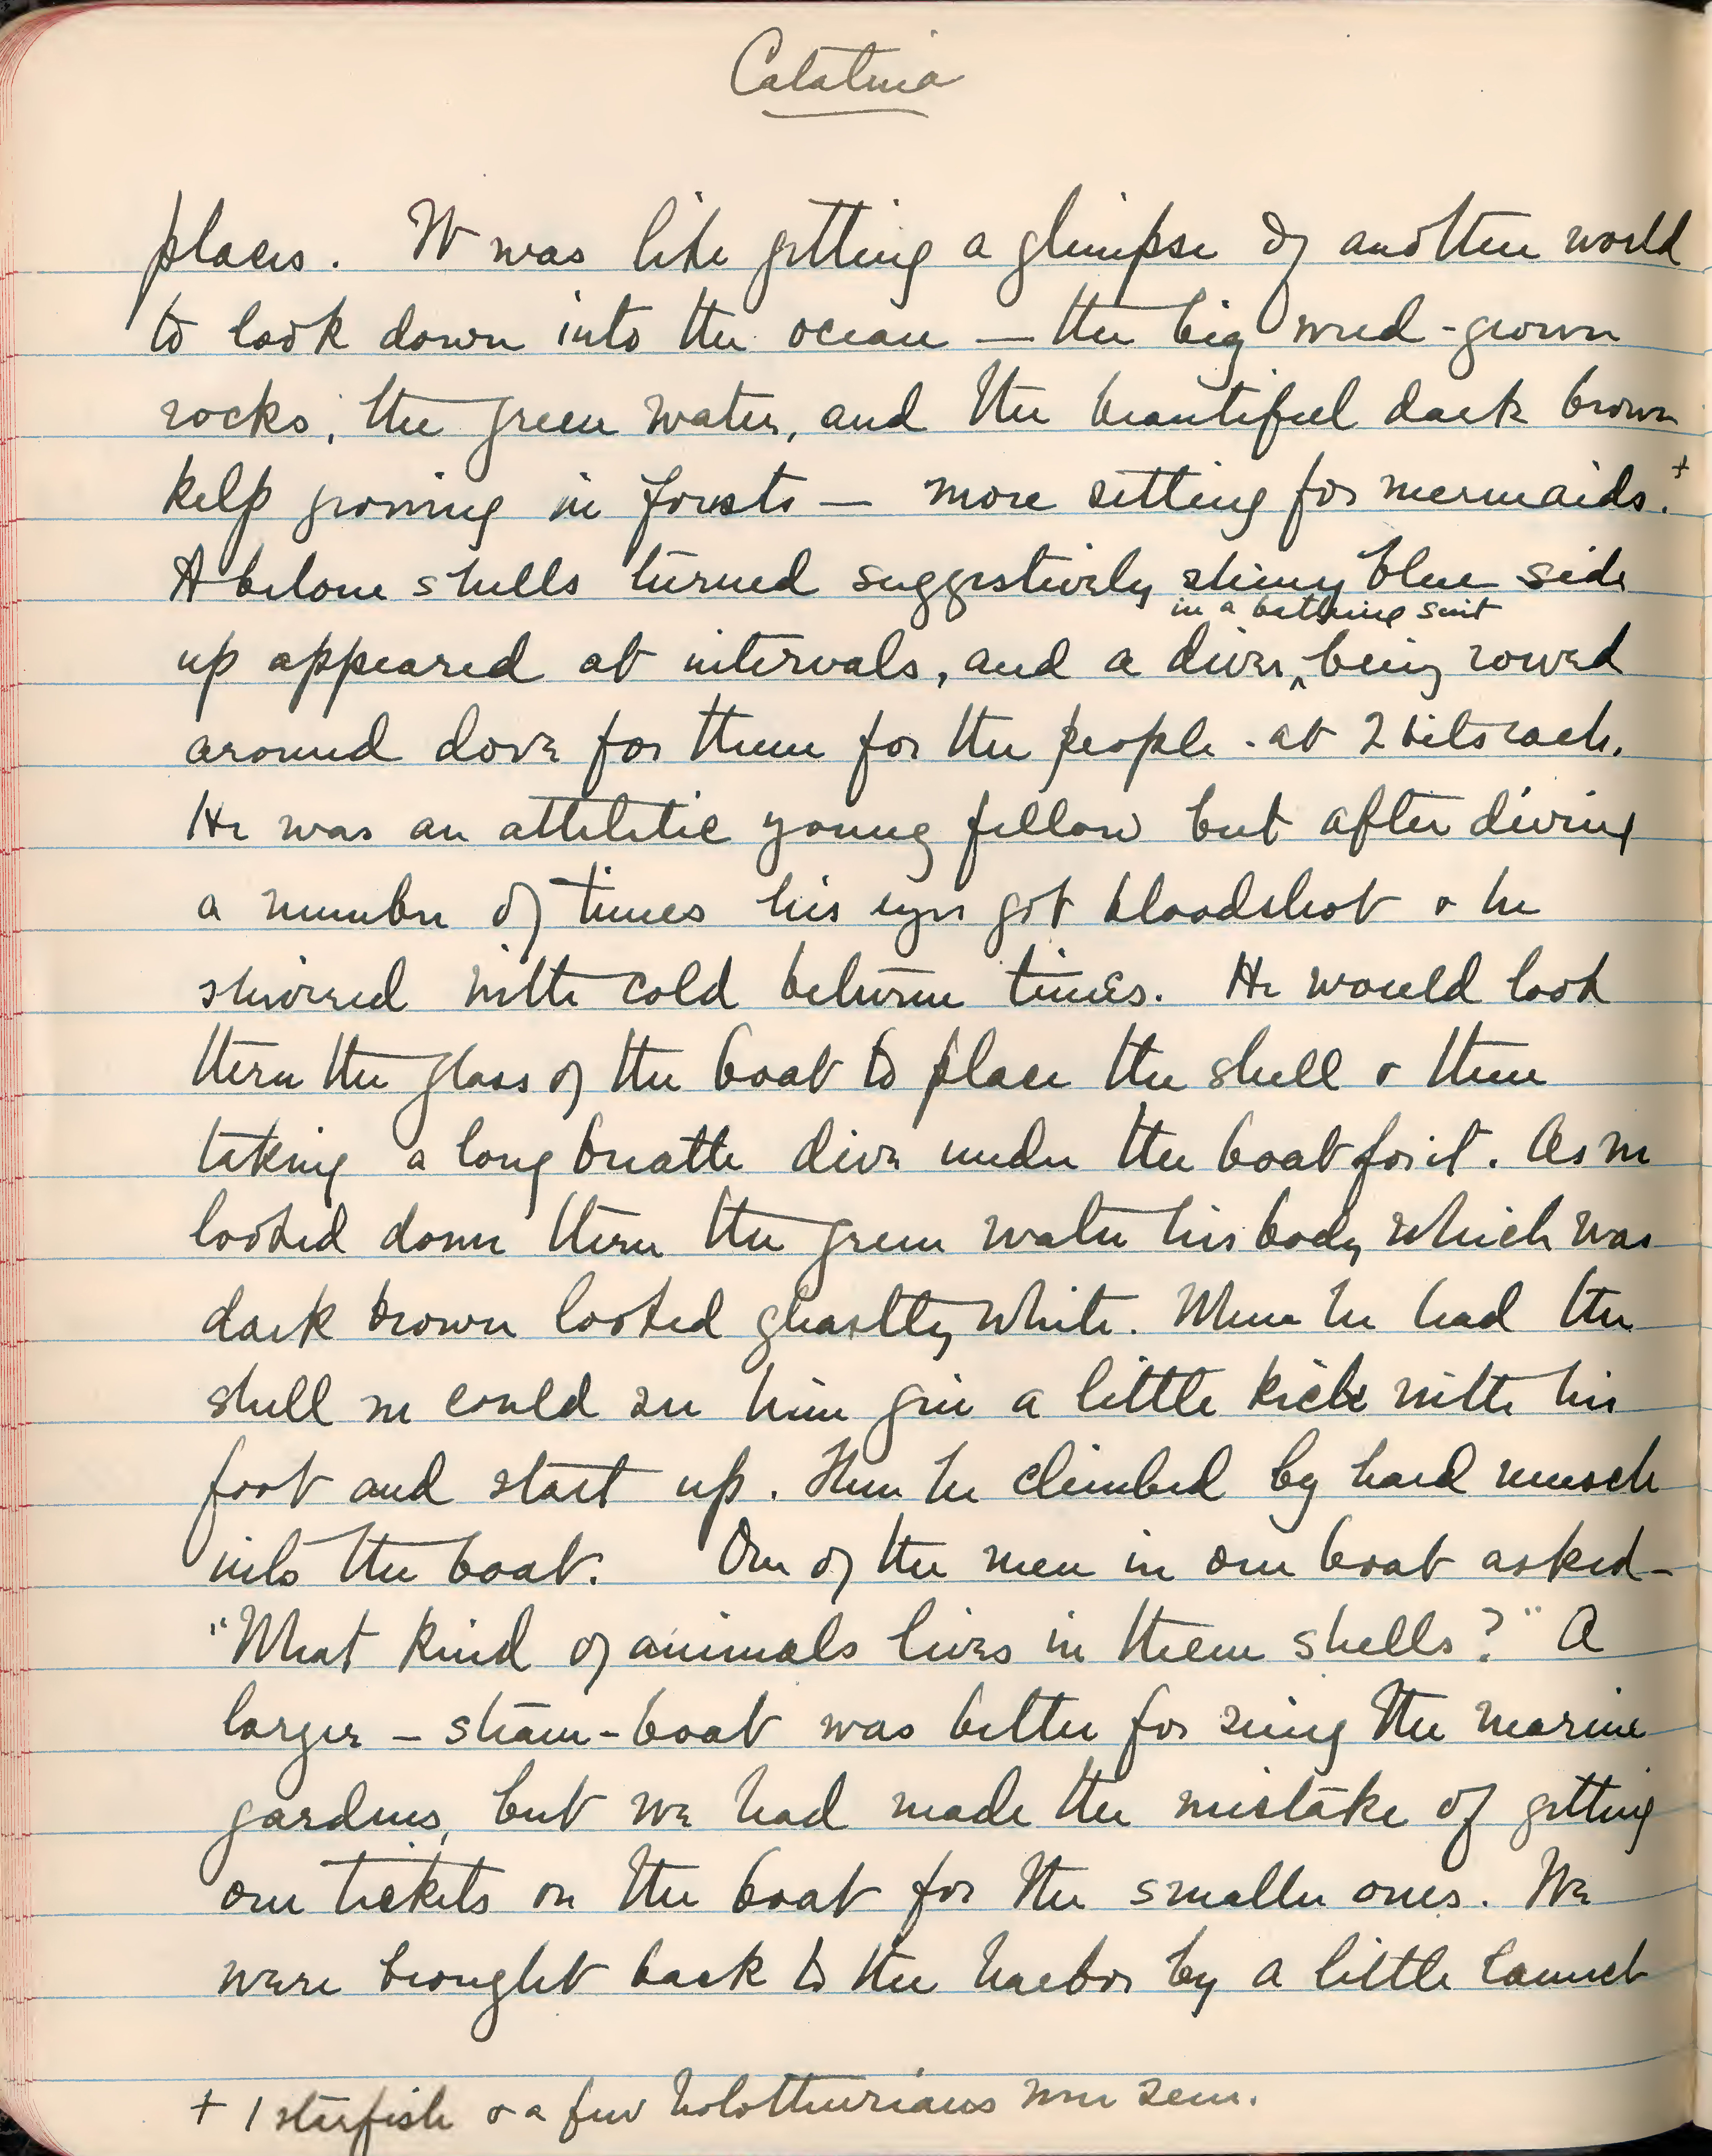 Catalina
places. It was like getting a glimpse of another world
to look down into the ocean — the big weed-grown
rocks, the green water, and the beautiful dark brown
kelp growing in forests — more setting for mermaids.+
Abelone shells turned suggestively shiny blue side
in a bathing suit
up appeared at intervals, and a diver ^ being rowed
around dove for them for the people - at 2 bits each.
He was an athletic young fellow but after diving
a number of times his eyes got bloodshot & he
shivered with cold between times. He would look
thru the glass of the boat to place the shell & then
taking a long breath dive under the boat for it. As we
looked down thru the green water his body which was
dark brown looked ghastly white. When he had the
shell we could see him give a little kick with his
foot and start up. Then he climbed by hard muscle
into the boat. One of the men in our boat asked -
"What kind of animals lives in them shells?" A
larger - steam-boat was better for seeing the marine
gardens, but we had made the mistake of getting
our tickets on the boat for the smaller ones. We
were brought back to the harbor by a little launch
+ 1 starfish & a few holothurians were seen.